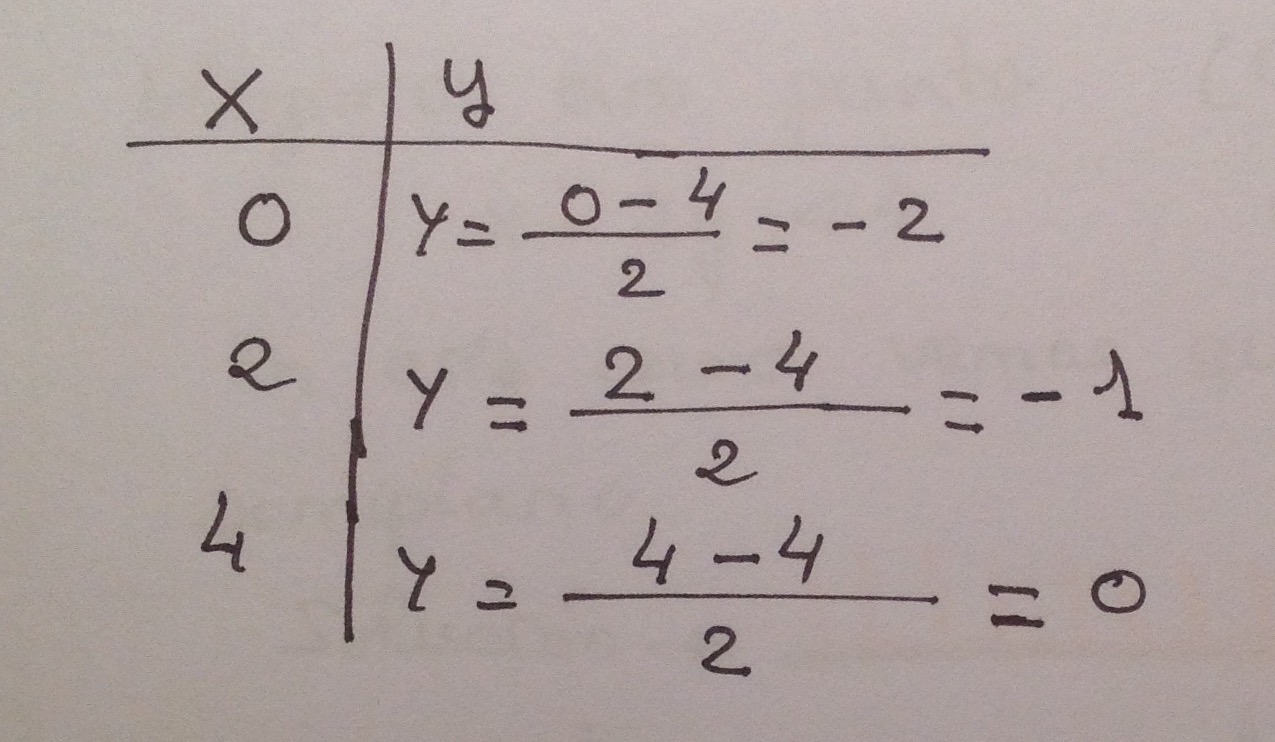 X y
0 Y = (0 - 4)/2 = - 2
2 Y = (2 - 4)/2 = - 1
4 Y = (4 - 4)/2 = 0